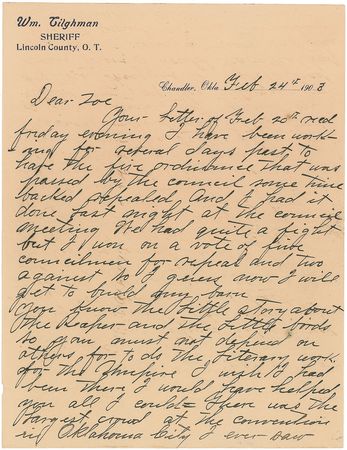 Wm. Tilghman
SHERIFF
Lincoln County, O. T.
Chandler, Okla Feb 24th 1903
Dear Zoe
Your letter of Feb 20th recd
friday evening I have been work-
ing for several days past to
have the fire ordinance that was
passed by the council some time
backed repealed and I had it
done last night at the council
meeting We had quite a fight
but I won on a vote of five
councilmen for repeal and two
against so I guess now I will
get to build my barn
You know the little story about
the Reaper and the little birds
so you must not depend on
others for to do the literary work
for the Empire I wish I had
been there I would have helped
you all I could = There was the
largest crowd at the convention
in Oklahoma City I ever saw